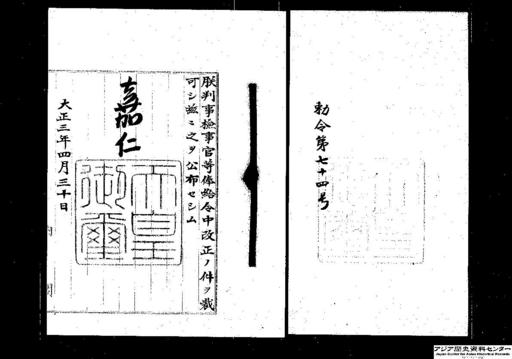 勅令第七十四号
朕判事検事官等俸給令中改正ノ件ヲ裁
可シ茲ニ之ヲ公布セシム
嘉仁
天皇
御璽
大正三年四月三十日
アジア歴史資料センター
Japan Center for Asian Historical Records